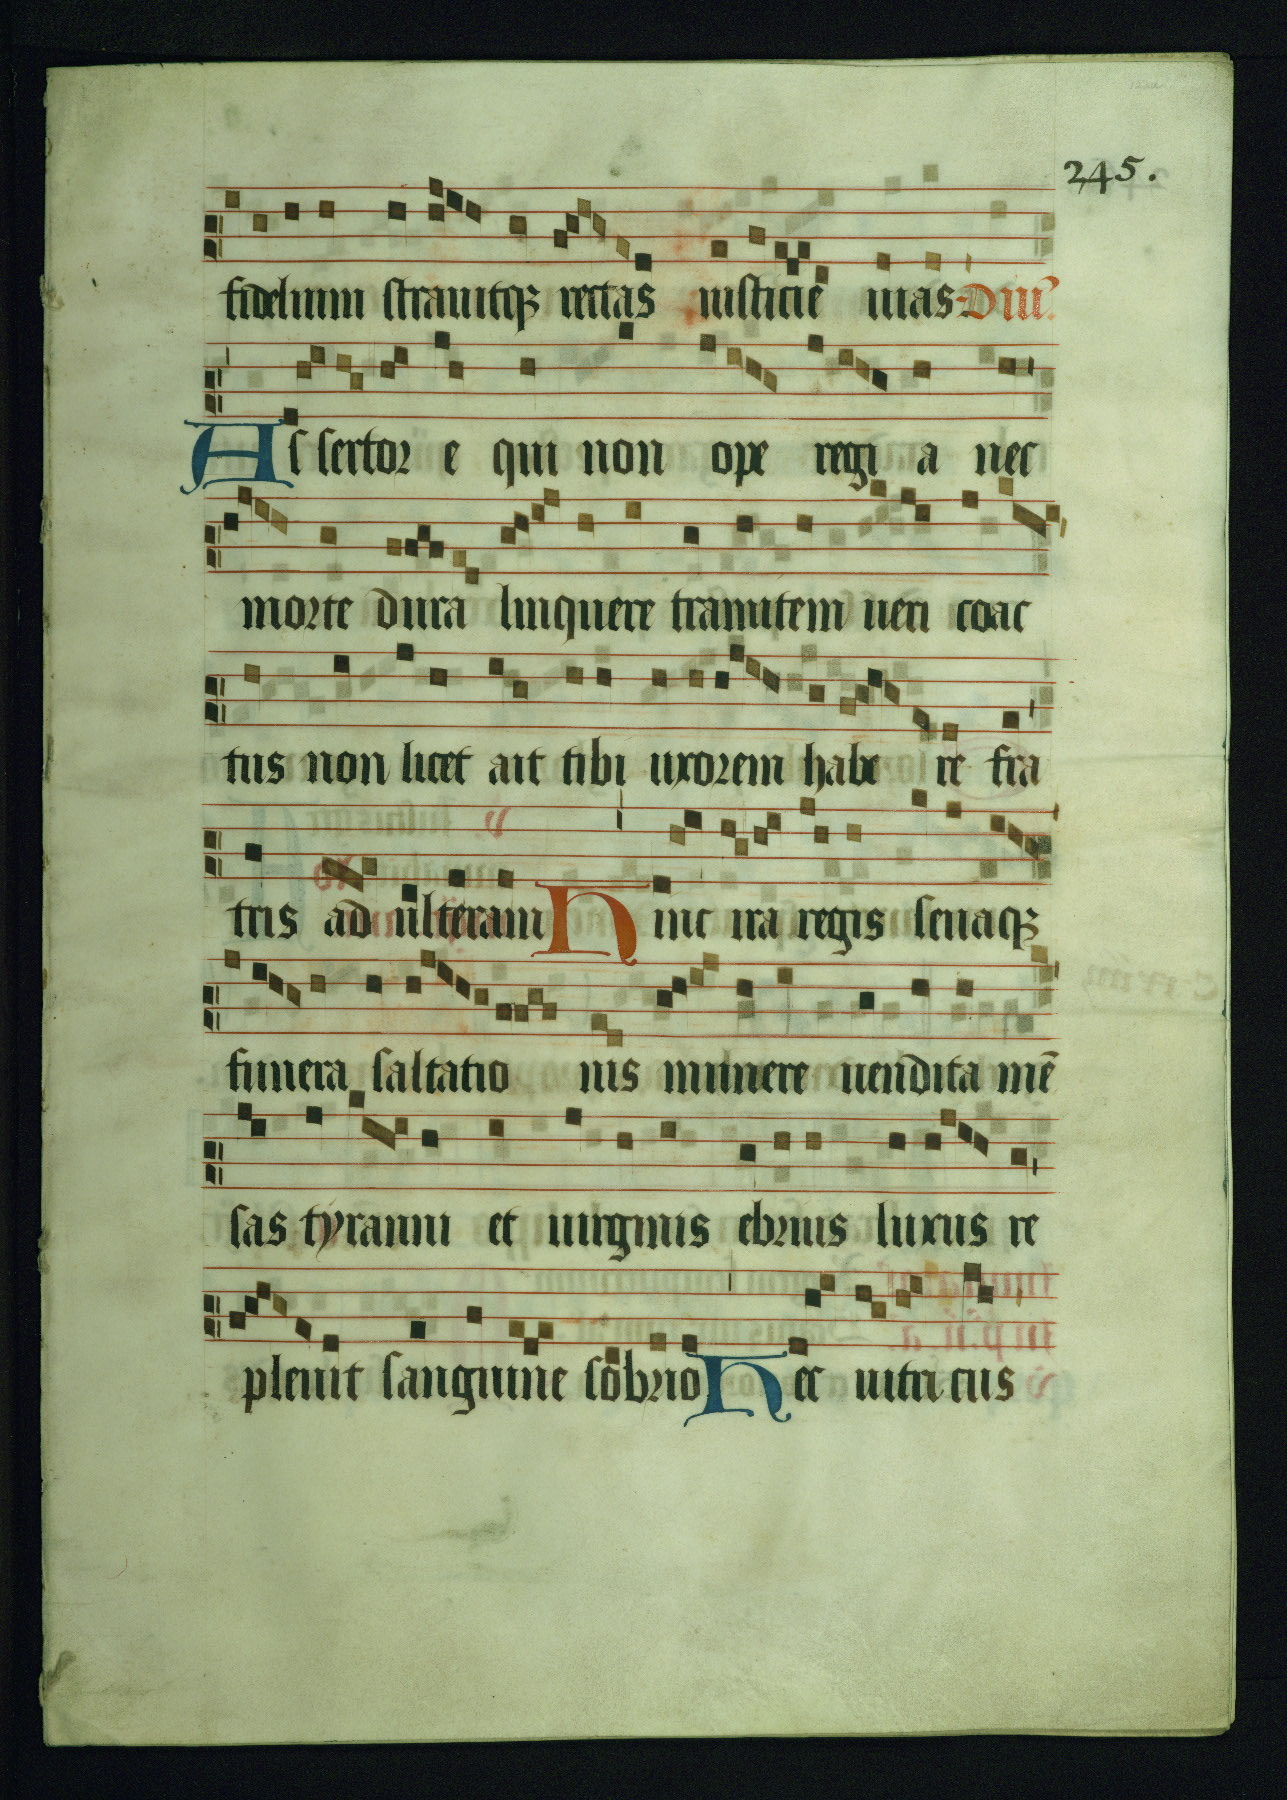 245.
fidelium strauitqꝫ rectas iusticiē uias Diuī.
As sertor e qui non ope regi a nec
morte dura linquere tramitem ueri coac
tus non licet ait tibi uxorem habe re fra
tris ad ulteram Hinc ira regis seuaqꝫ
funera saltatio nis munere uendita mē
sas tyranni et uirginis ebrius luxus re
pleuit sanguine sobrio Hec uitri cus